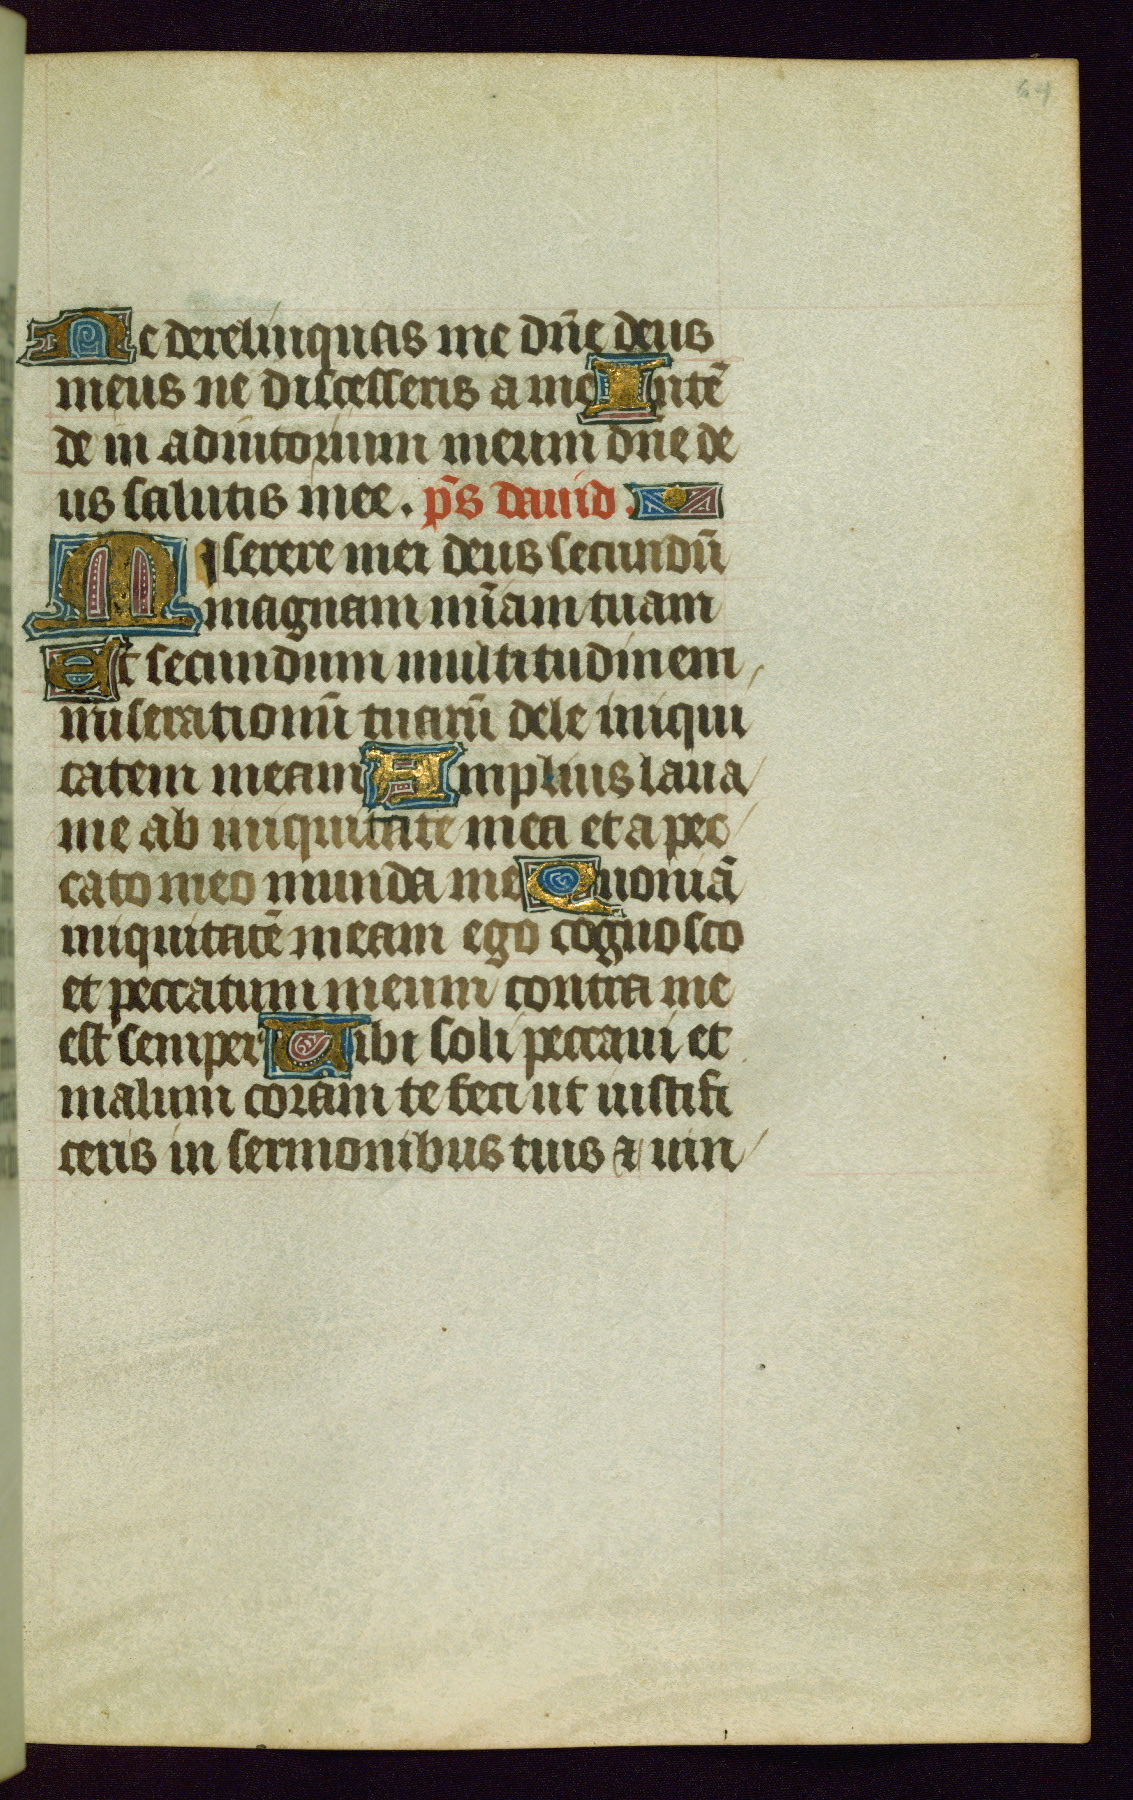 64
Ne derelinquas me dn̄e deus
meus ne discesseris a me Intē
de in adiutorium meum dn̄e de
us salutis mee. p̄s dauid.
Miserere mei deus secundū
magnam mīam tuam
Et secundum multitudinem
miserationū tuarū dele iniqui
tatem meam Amplius laua
me ab iniquitate mea et a pec
cato meo munda me Quoniā
iniquitatē meam ego cognosco
et peccatum meum contra me
est semper Tibi soli peccaui et
malum coram te feci ut iustifi
ceris in sermonibus tuis ⁊ uin